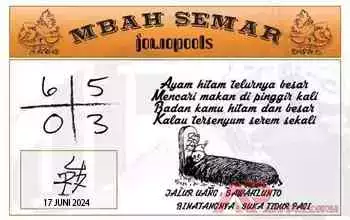 MBAH SEMAR
jonopools
6 5
0 3
Ayam hitam telurnya besar
Mencari makan di pinggir kali
Badan kamu hitam dan besar
Kalau tersenyum serem sekali
JALUR UANG : SAWAHLUNTO
BINATANGNYA : SUKA TIDUR PAGI
17 JUNI 2024